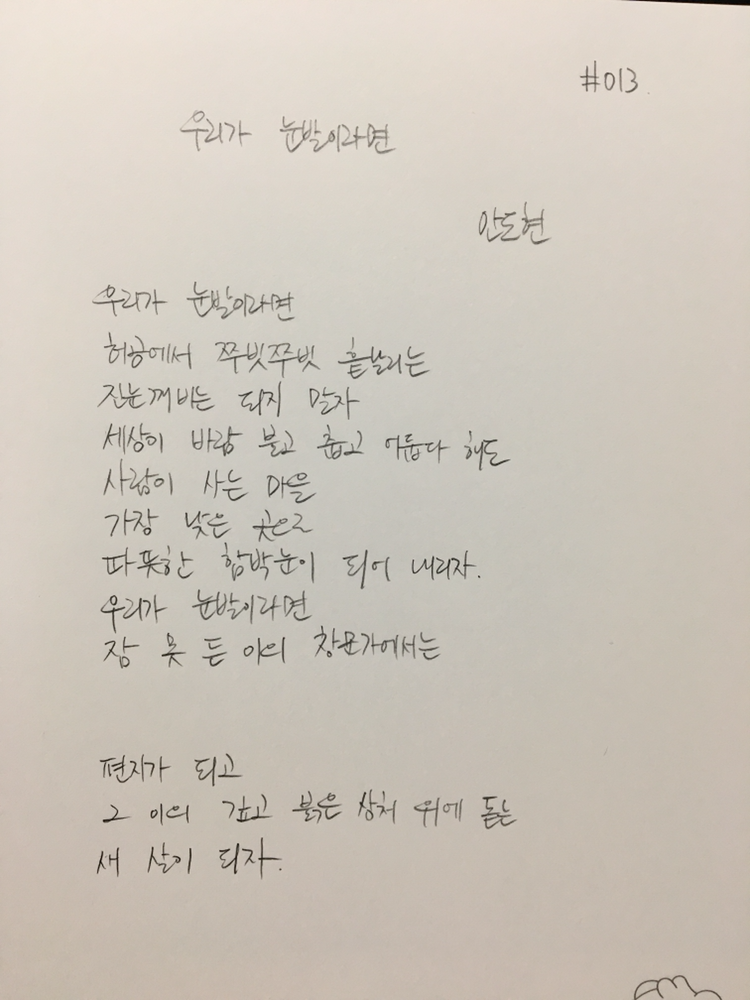 #013
우리가 눈발이라면
안도현
우리가 눈발이라면
허공에서 쭈빗쭈빗 흩날리는
진눈깨비는 되지 말자
세상이 바람 불고 춥고 어둡다 해도
사람이 사는 마을
가장 낮은 곳으로
따뜻한 함박눈이 되어 내리자.
우리가 눈발이라면
잠 못 든 이의 창문가에서는
편지가 되고
그 이의 깊고 붉은 상처 위에 돋는
새 살이 되자.